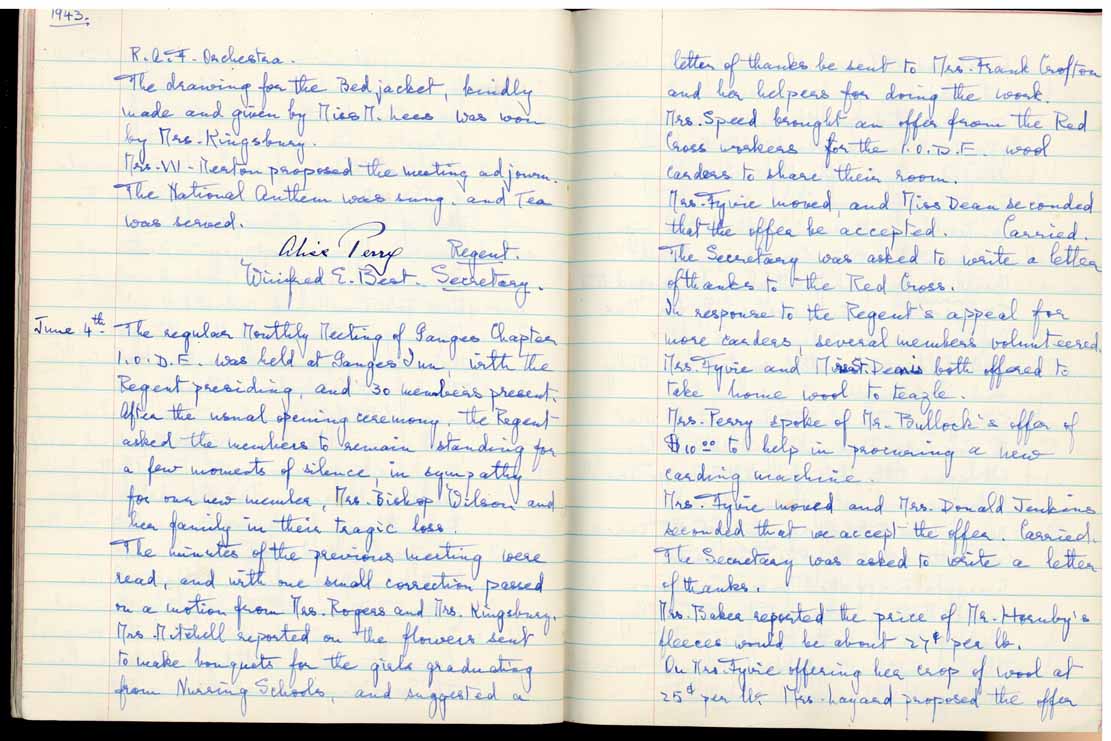 1943.
R.A.F. Orchestra.
The drawing for the Bed jacket, kindly
made and given by Miss M. Lees was won
by Mrs. Kingsbury.
Mrs. W. Norton proposed the meeting adjourn.
The National Anthem was sung. and Tea
was served.
Alice Perry Regent.
Winifred E. Best. Secretary.
June 4th. The regular Monthly Meeting of Ganges Chapter
I.O.D.E. was held at Ganges Inn, with the
Regent presiding, and 30 members present.
After the usual opening ceremony, the Regent
asked the members to remain standing for
a few moments of silence, in sympathy
for our new member, Mrs. Bishop Wilson and
her family in their tragic loss.
The minutes of the previous meeting were
read, and with one small correction passed
on a motion from Mrs. Rogers and Mrs. Kingsbury.
Mrs. Mitchell reported on the flowers sent
to make bouquets for the girls graduating
from Nursing Schools, and suggested a
letter of thanks be sent to Mrs. Frank Crofton
and her helpers for doing the work.
Mrs. Speed brought an offer from the Red
Cross workers for the I.O.D.E. wool
carders to share their room.
Mrs. Fyvie moved, and Miss Dean seconded
that the offer be accepted. Carried.
The Secretary was asked to write a letter
of thanks to the Red Cross.
In response to the Regent's appeal for
more carders, several members volunteered.
Mrs. Fyvie and Miss Dean both offered to
take home wool to teazle.
Mrs. Perry spoke of Mr. Bullock's offer of
$10.00 to help in procuring a new
carding machine.
Mrs. Fyvie moved and Mrs. Donald Jenkins
seconded that we accept the offer. Carried.
The Secretary was asked to write a letter
of thanks.
Mrs. Baker reported the price of Mr. Hornby's
fleeces would be about 27¢ per lb.
On Mrs. Fyvie offering her crop of wool at
25¢ per lb. Mrs. Layard proposed the offer